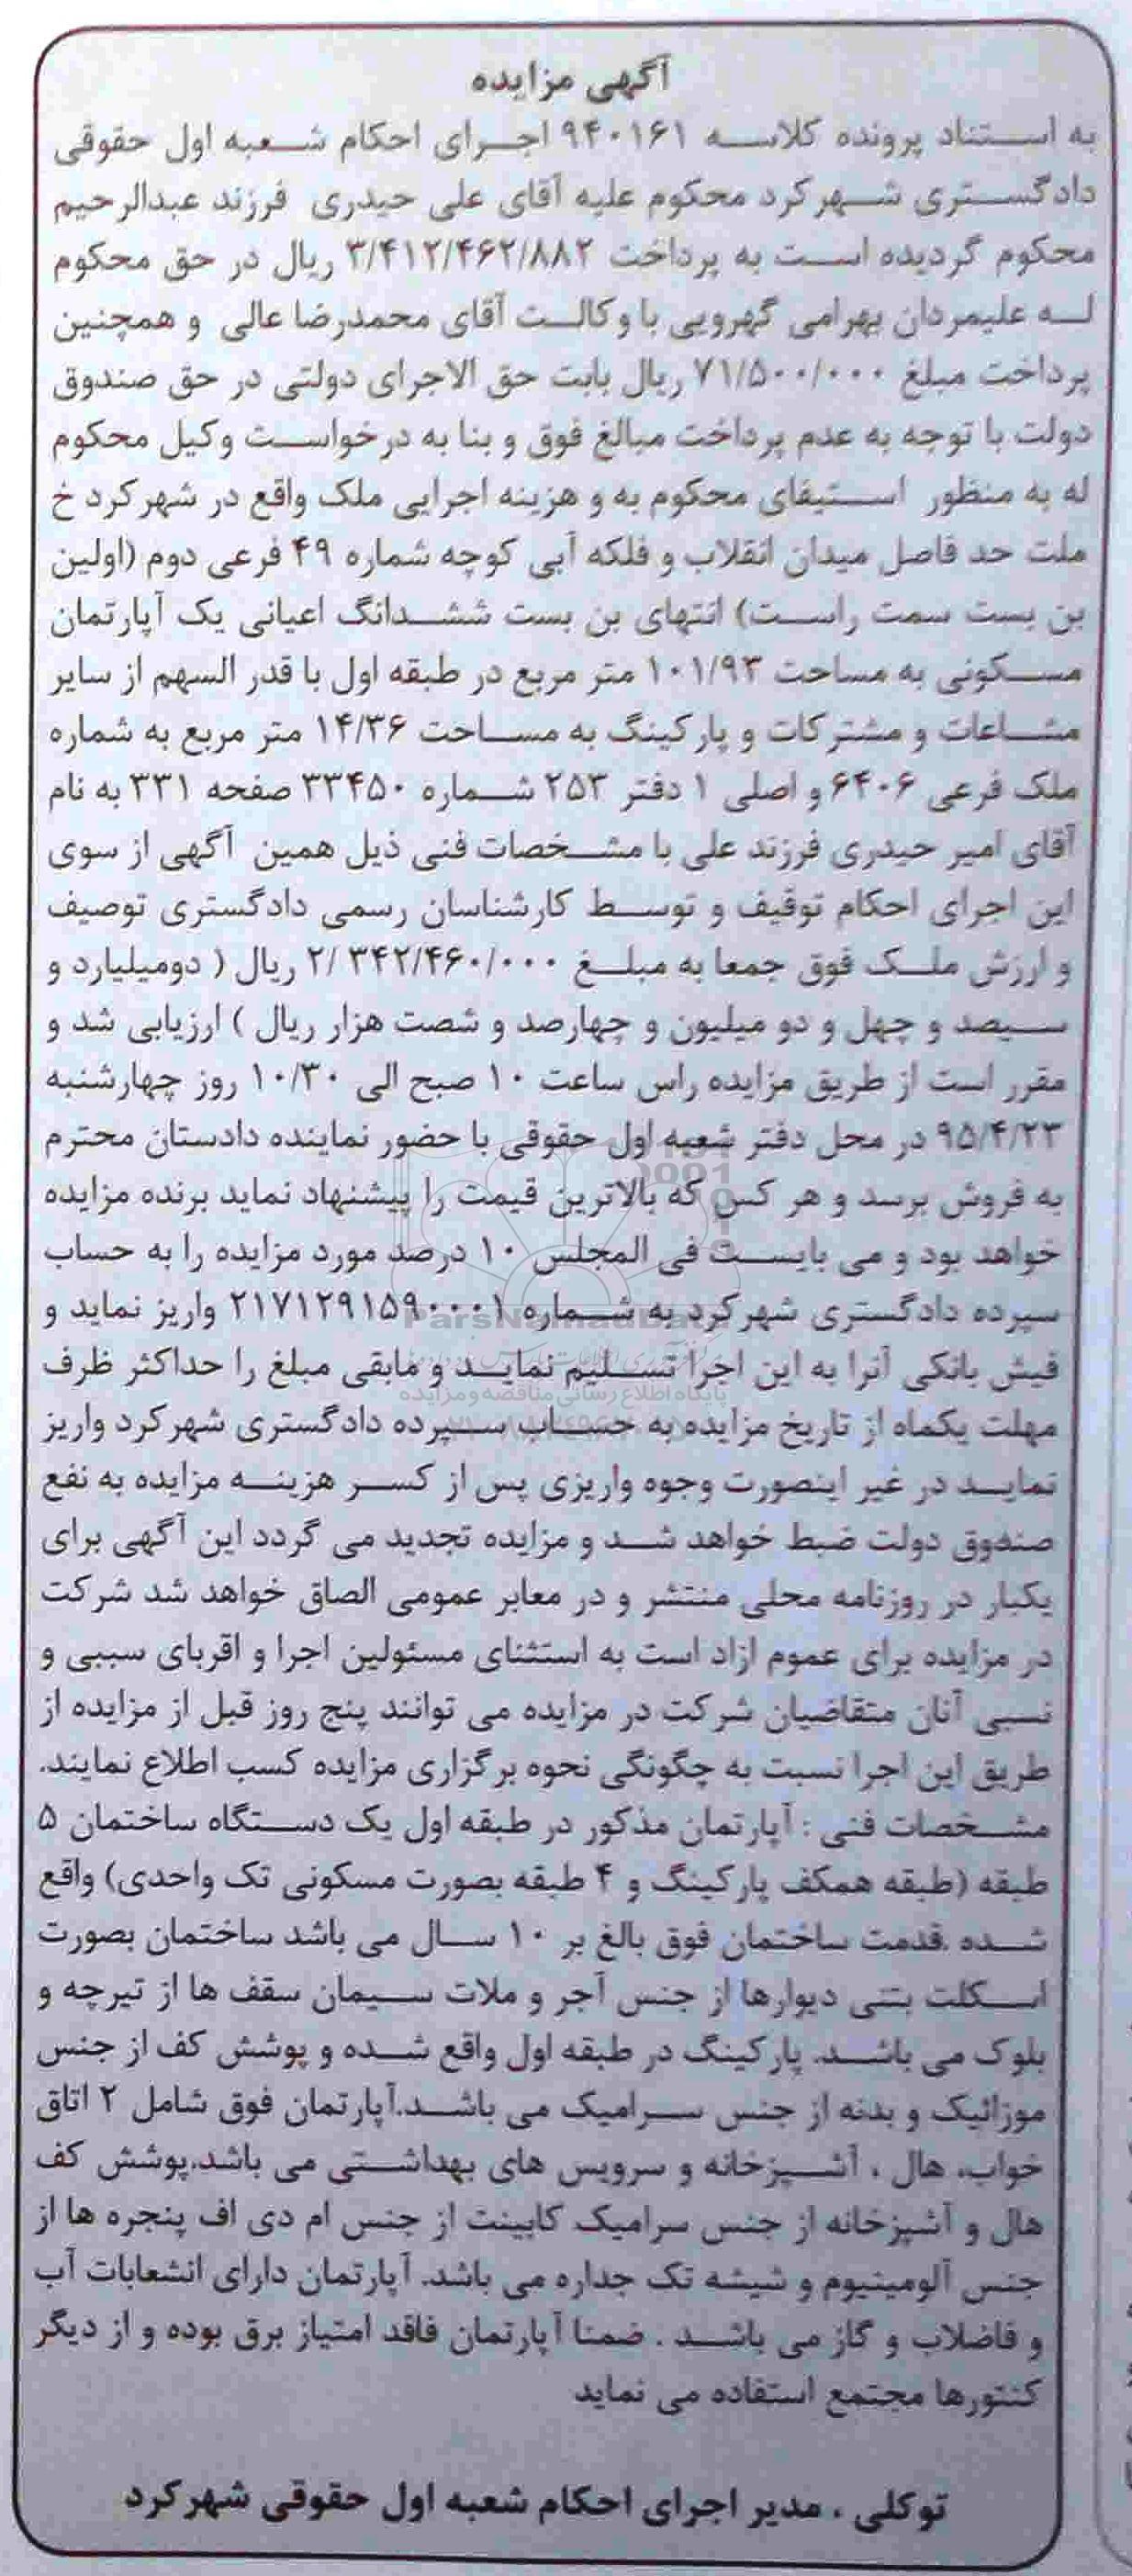 آگهی مزایده
به استناد پرونده کلاسه ۹۴۰۱۶۱ اجرای احکام شعبه اول حقوقی
دادگستری شهرکرد محکوم علیه آقای علی حیدری فرزند عبدالرحیم
محکوم گردیده است به پرداخت ۳/۴۱۲/۴۶۲/۸۸۲ ریال در حق محکوم
له علیمردان بهرامی گهرویی با وکالت آقای محمدرضا عالی و همچنین
پرداخت مبلغ ۷۱/۵۰۰/۰۰۰ ریال بابت حق الاجرای دولتی در حق صندوق
دولت با توجه به عدم پرداخت مبالغ فوق و بنا به درخواست وکیل محکوم
له به منظور استیفای محکوم به و هزینه اجرایی ملک واقع در شهرکرد خ
ملت حد فاصل میدان انقلاب و فلکه آبی کوچه شماره ۴۹ فرعی دوم (اولین
بن بست سمت راست) انتهای بن بست ششدانگ اعیانی یک آپارتمان
مسکونی به مساحت ۱۰۱/۹۳ متر مربع در طبقه اول با قدر السهم از سایر
مشاعات و مشترکات و پارکینگ به مساحت ۱۴/۳۶ متر مربع به شماره
ملک فرعی ۶۴۰۶ و اصلی ۱ دفتر ۲۵۳ شماره ۳۳۴۵۰ صفحه ۳۳۱ به نام
آقای امیر حیدری فرزند علی با مشخصات فنی ذیل همین آگهی از سوی
این اجرای احکام توقیف و توسط کارشناسان رسمی دادگستری توصیف
و ارزش ملک فوق جمعا به مبلغ ۲/ ۳۴۲/۴۶۰/۰۰۰ ریال ( دومیلیارد و
سیصد و چهل و دو میلیون و چهارصد و شصت هزار ریال ) ارزیابی شد و
مقرر است از طریق مزایده راس ساعت ۱۰ صبح الی ۱۰/۳۰ روز چهارشنبه
۹۵/۴/۲۳ در محل دفتر شعبه اول حقوقی با حضور نماینده دادستان محترم
به فروش برسد و هر کس که بالاترین قیمت را پیشنهاد نماید برنده مزایده
خواهد بود و می بایست فی المجلس ۱۰ درصد مورد مزایده را به حساب
سپرده دادگستری شهرکرد به شماره ۲۱۷۱۲۹۱۵۹۰۰۰۱ واریز نماید و
فیش بانکی آنرا به این اجرا تسلیم نماید و مابقی مبلغ را حداکثر ظرف
مهلت یکماه از تاریخ مزایده به حساب سپرده دادگستری شهرکرد واریز
نماید در غیر اینصورت وجوه واریزی پس از کسر هزینه مزایده به نفع
صندوق دولت ضبط خواهد شد و مزایده تجدید می گردد این آگهی برای
یکبار در روزنامه محلی منتشر و در معابر عمومی الصاق خواهد شد شرکت
در مزایده برای عموم ازاد است به استثنای مسئولین اجرا و اقربای سببی و
نسبی آنان متقاضیان شرکت در مزایده می توانند پنج روز قبل از مزایده از
طریق این اجرا نسبت به چگونگی نحوه برگزاری مزایده کسب اطلاع نمایند.
مشخصات فنی : آپارتمان مذکور در طبقه اول یک دستگاه ساختمان ۵
طبقه (طبقه همکف پارکینگ و ۴ طبقه بصورت مسکونی تک واحدی) واقع
شده .قدمت ساختمان فوق بالغ بر ۱۰ سال می باشد ساختمان بصورت
اسکلت بتنی دیوارها از جنس آجر و ملات سیمان سقف ها از تیرچه و
بلوک می باشد. پارکینگ در طبقه اول واقع شده و پوشش کف از جنس
موزائیک و بدنه از جنس سرامیک می باشد.آپارتمان فوق شامل ۲ اتاق
خواب، هال ، آشپزخانه و سرویس های بهداشتی می باشد.پوشش کف
هال و آشپزخانه از جنس سرامیک کابینت از جنس ام دی اف پنجره ها از
جنس آلومینیوم و شیشه تک جداره می باشد. آپارتمان دارای انشعابات آب
و فاضلاب و گاز می باشد . ضمنا آپارتمان فاقد امتیاز برق بوده و از دیگر
کنتورها مجتمع استفاده می نماید
توکلی ، مدیر اجرای احکام شعبه اول حقوقی شهرکرد
پایگاه اطلاع رسانی مناقصه و مزایده